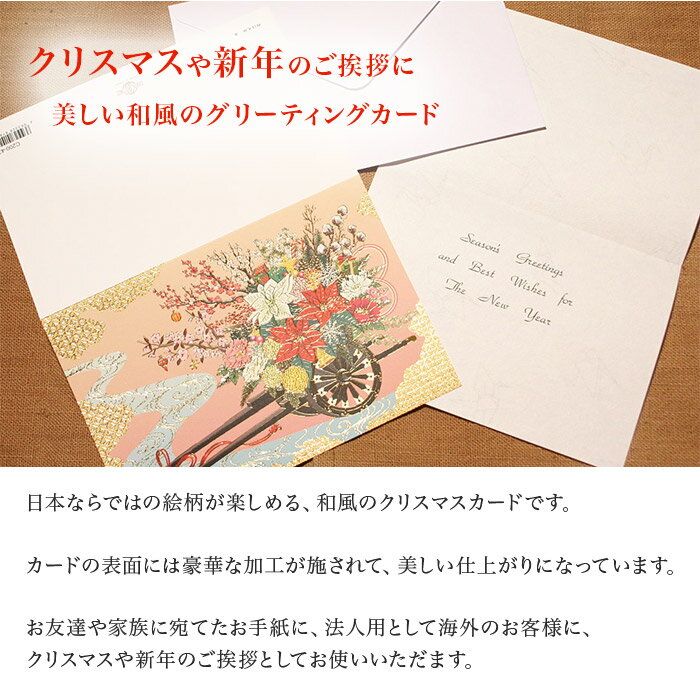 クリスマスや新年のご挨拶に
美しい和風のグリーティングカード
Season's Greetings
and Best Wishes for
The New Year
日本ならではの絵柄が楽しめる、和風のクリスマスカードです。
カードの表面には豪華な加工が施されて、美しい仕上がりになっています。
お友達や家族に宛てたお手紙に、法人用として海外のお客様に、
クリスマスや新年のご挨拶としてお使いいただます。